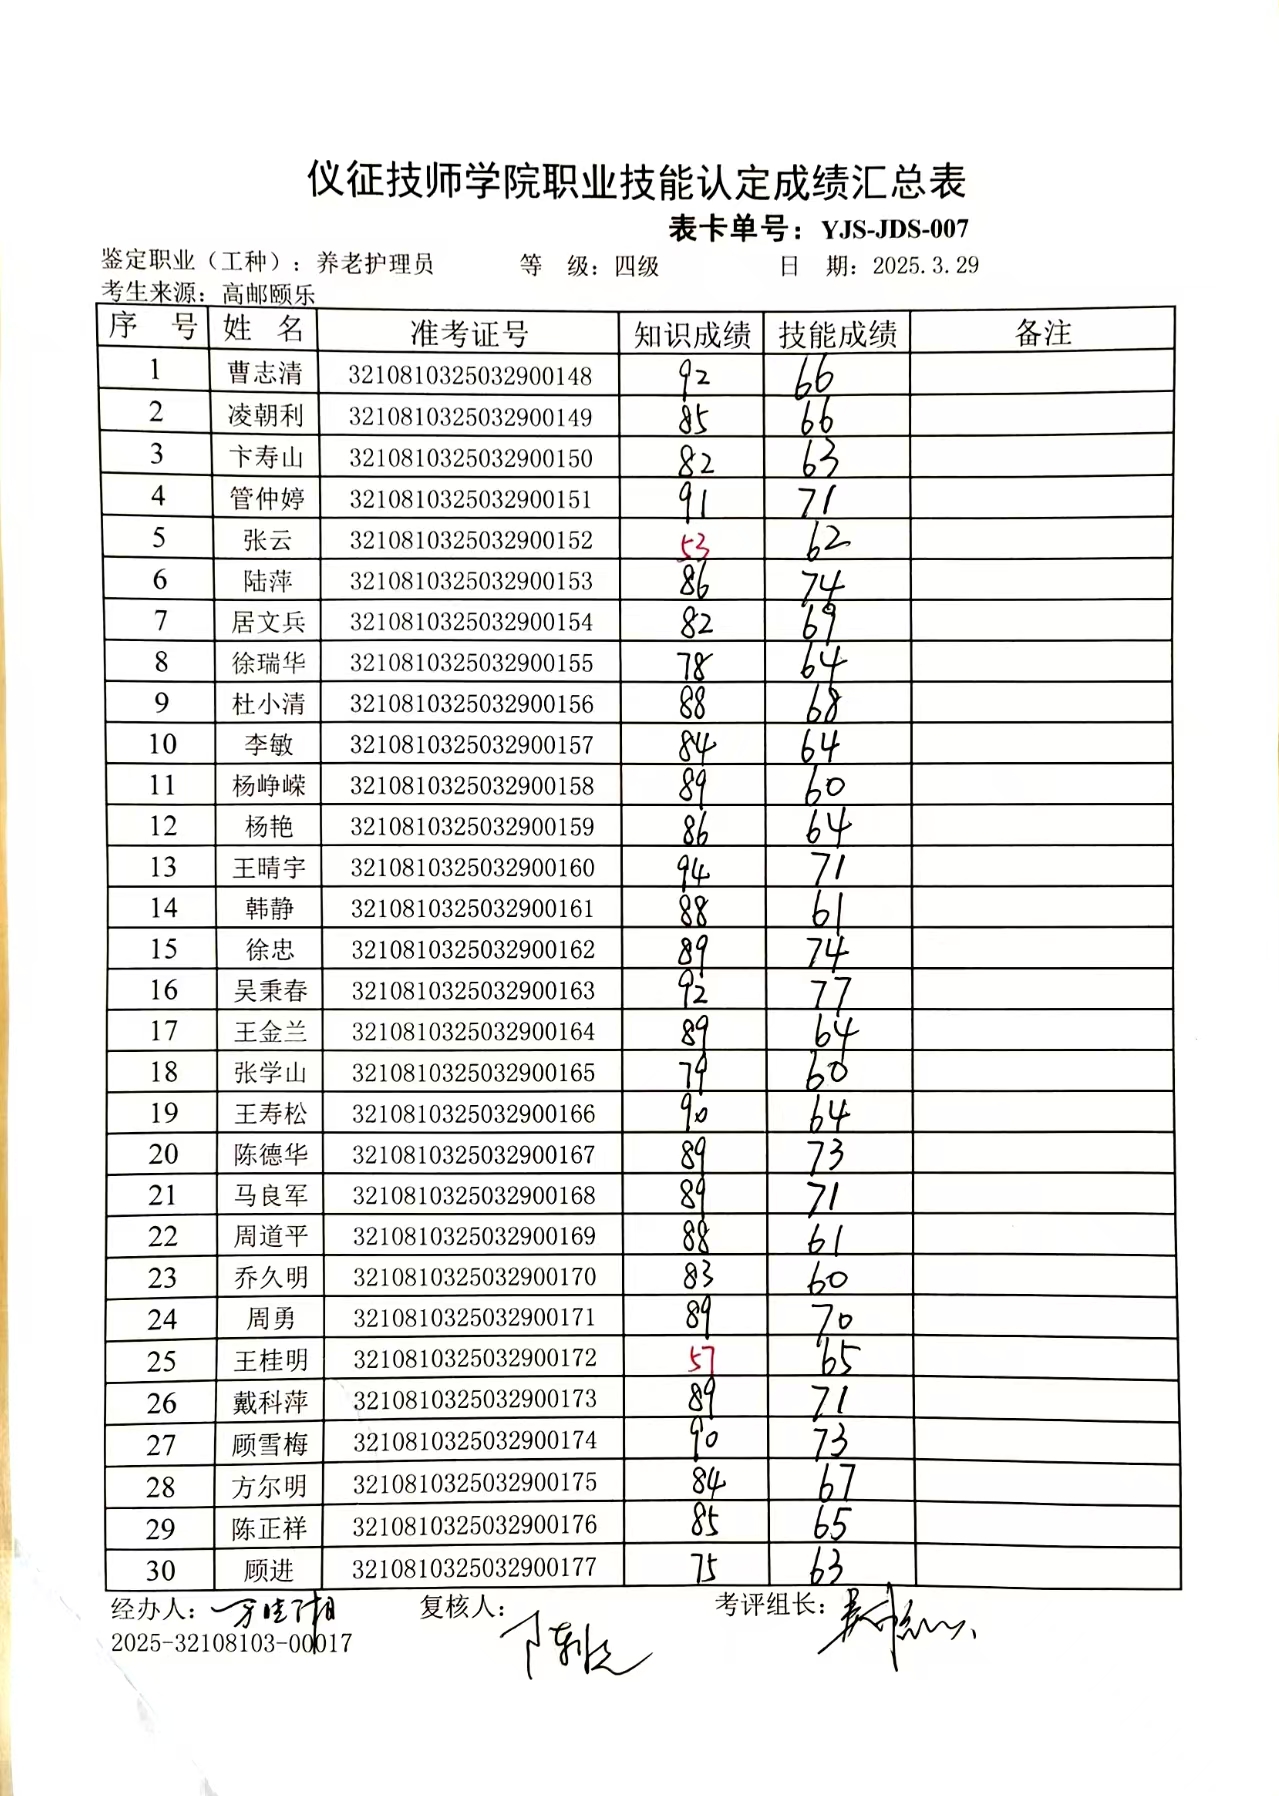 仪征技师学院职业技能认定成绩汇总表
表卡单号：YJS-JDS-007
鉴定职业（工种）：养老护理员 等 级：四级 日 期：2025.3.29
考生来源：高邮颐乐
序 号 姓 名 准考证号 知识成绩 技能成绩 备注
1 曹志清 3210810325032900148 92 66
2 凌朝利 3210810325032900149 85 66
3 卞寿山 3210810325032900150 82 63
4 管仲婷 3210810325032900151 91 71
5 张云 3210810325032900152 53 62
6 陆萍 3210810325032900153 86 74
7 居文兵 3210810325032900154 82 69
8 徐瑞华 3210810325032900155 78 64
9 杜小清 3210810325032900156 88 68
10 李敏 3210810325032900157 84 64
11 杨峥嵘 3210810325032900158 89 60
12 杨艳 3210810325032900159 86 64
13 王晴宇 3210810325032900160 94 71
14 韩静 3210810325032900161 88 61
15 徐忠 3210810325032900162 89 74
16 吴秉春 3210810325032900163 92 77
17 王金兰 3210810325032900164 89 64
18 张学山 3210810325032900165 79 60
19 王寿松 3210810325032900166 90 64
20 陈德华 3210810325032900167 89 73
21 马良军 3210810325032900168 89 71
22 周道平 3210810325032900169 88 61
23 乔久明 3210810325032900170 83 60
24 周勇 3210810325032900171 89 70
25 王桂明 3210810325032900172 57 65
26 戴科萍 3210810325032900173 89 71
27 顾雪梅 3210810325032900174 90 73
28 方尔明 3210810325032900175 84 67
29 陈正祥 3210810325032900176 85 65
30 顾进 3210810325032900177 75 63
经办人： 复核人： 考评组长：
2025-32108103-00017